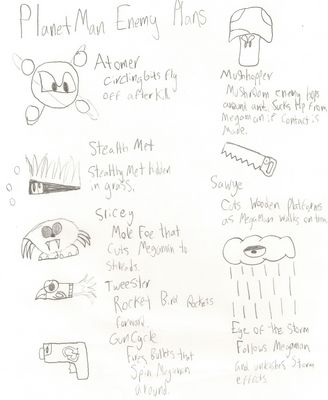 PlanetMan Enemy Plans
Atomer
Circling bits fly
off after Kill
Stealth Met
Stealthy Met hidden
in grass.
Slicey
Mole Foe that
Cuts Megaman to
Shreads.
Tweester
Rocket Bird Rockets
forward.
GunCycle
Fires Bullets that
Spin Megaman
around.
Mushhopper
Mushroom enemy hops
around and Sucks Hp from
Megaman if Contact is
Made.
Sawye
Cuts Wooden Platforms
as MegaMan walks on them
Eye of the Storm
Follows Megaman
and unleashes Storm
effects.